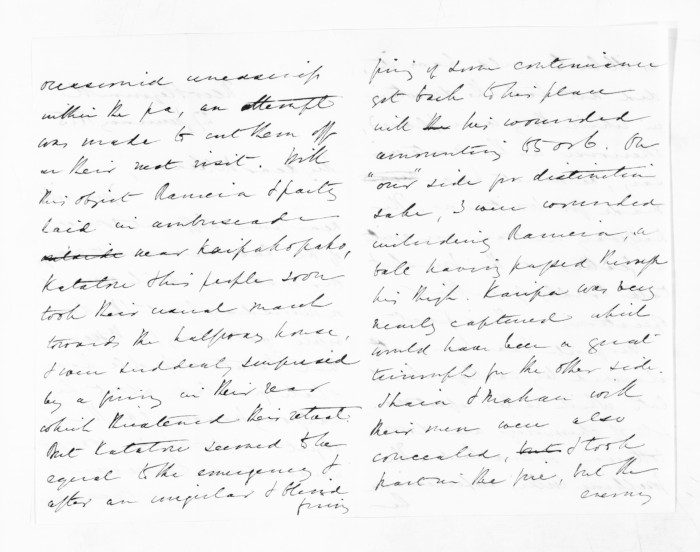 occasioned uneasiness
within the pa, an attempt
was made to cut them off
on their next visit. With
this object Rameira & party
laid in ambuscade
outside near Kaipakopako,
Katatore & his people soon
took their usual march
towards the halfway house,
& were suddenly surprised
by a firing in their rear
which threatened their retreat.
But Katatore seemed to be
equal to the emergency &
after an irregular & blind
firing
firing of some continuance
got back to his place
with the his wounded
amounting to 5 or 6. On
"our" side for distinction
sake, 3 were wounded
including Rameira, a
ball having passed through
his thigh. Karipa was very
nearly captured which
would have been a great
triumph for the other side.
Ihaia & Mahau with
their men were also
concealed, but & took
part in the fire, but the
enemy